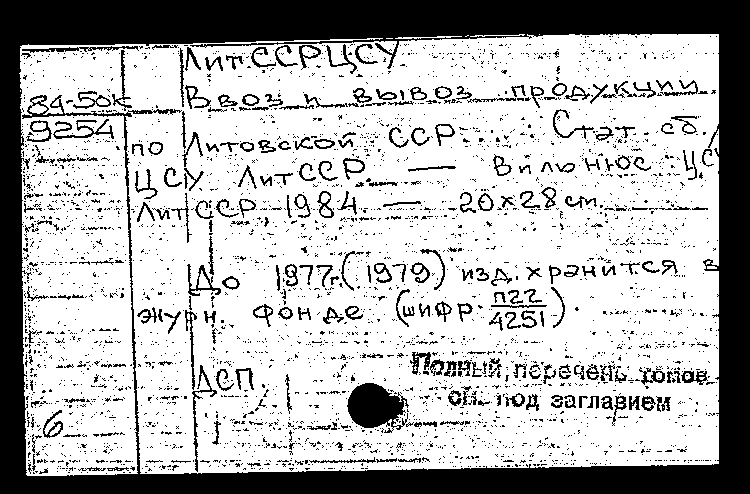 Лит.ССР ЦСУ
84-50к Ввоз и вывоз продукции
9254
по Литовской ССР.... : Стат. сб.
ЦСУ ЛитССР. — Вильнюс: ЦСУ
ЛитССР, 1984 — 20x28 cm.
До 1977г. (1979) изд. хранится в
журн. фонде (шифр П22
4251).
ДСП.
Полный перечень томов
см. под заглавием
6